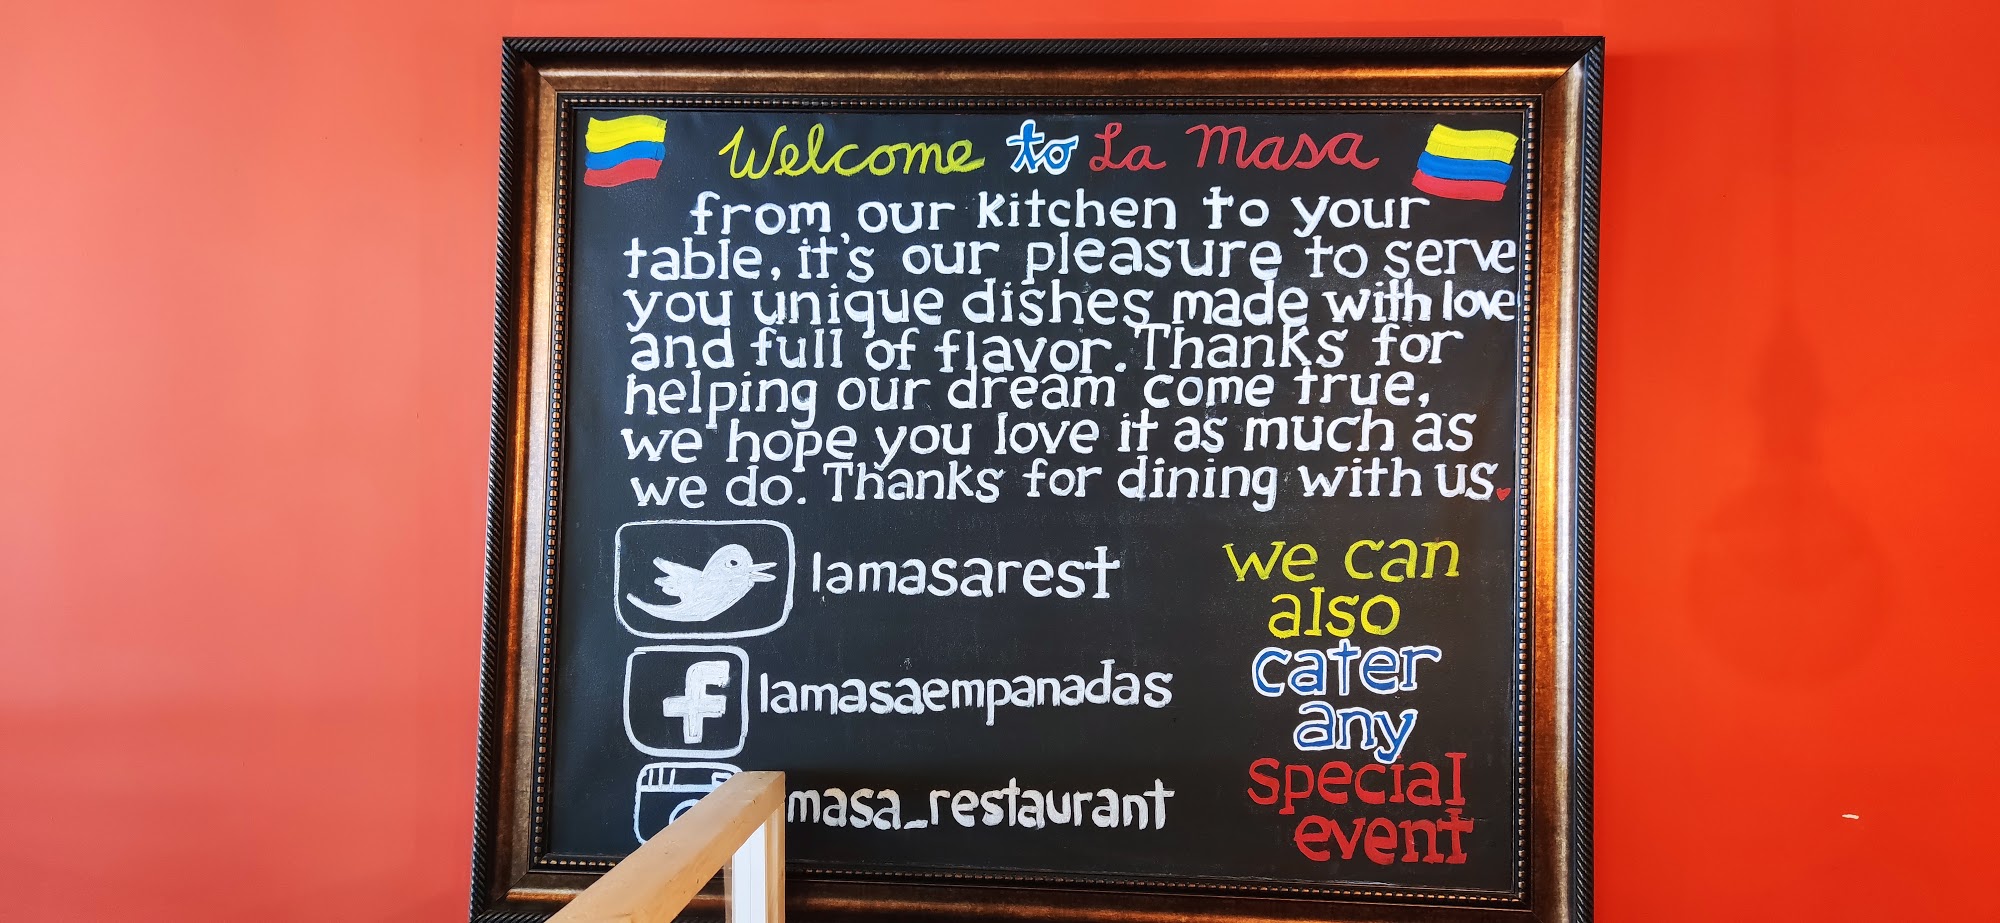 Welcome to La Masa
from our kitchen to your
table, it's our pleasure to serve
you unique dishes made with love
and full of flavor. Thanks for
helping our dream come true,
we hope you love it as much as
we do. Thanks for dining with us.
lamasarest
lamasaempanadas
masa_restaurant
we can
also
cater
any
special
event